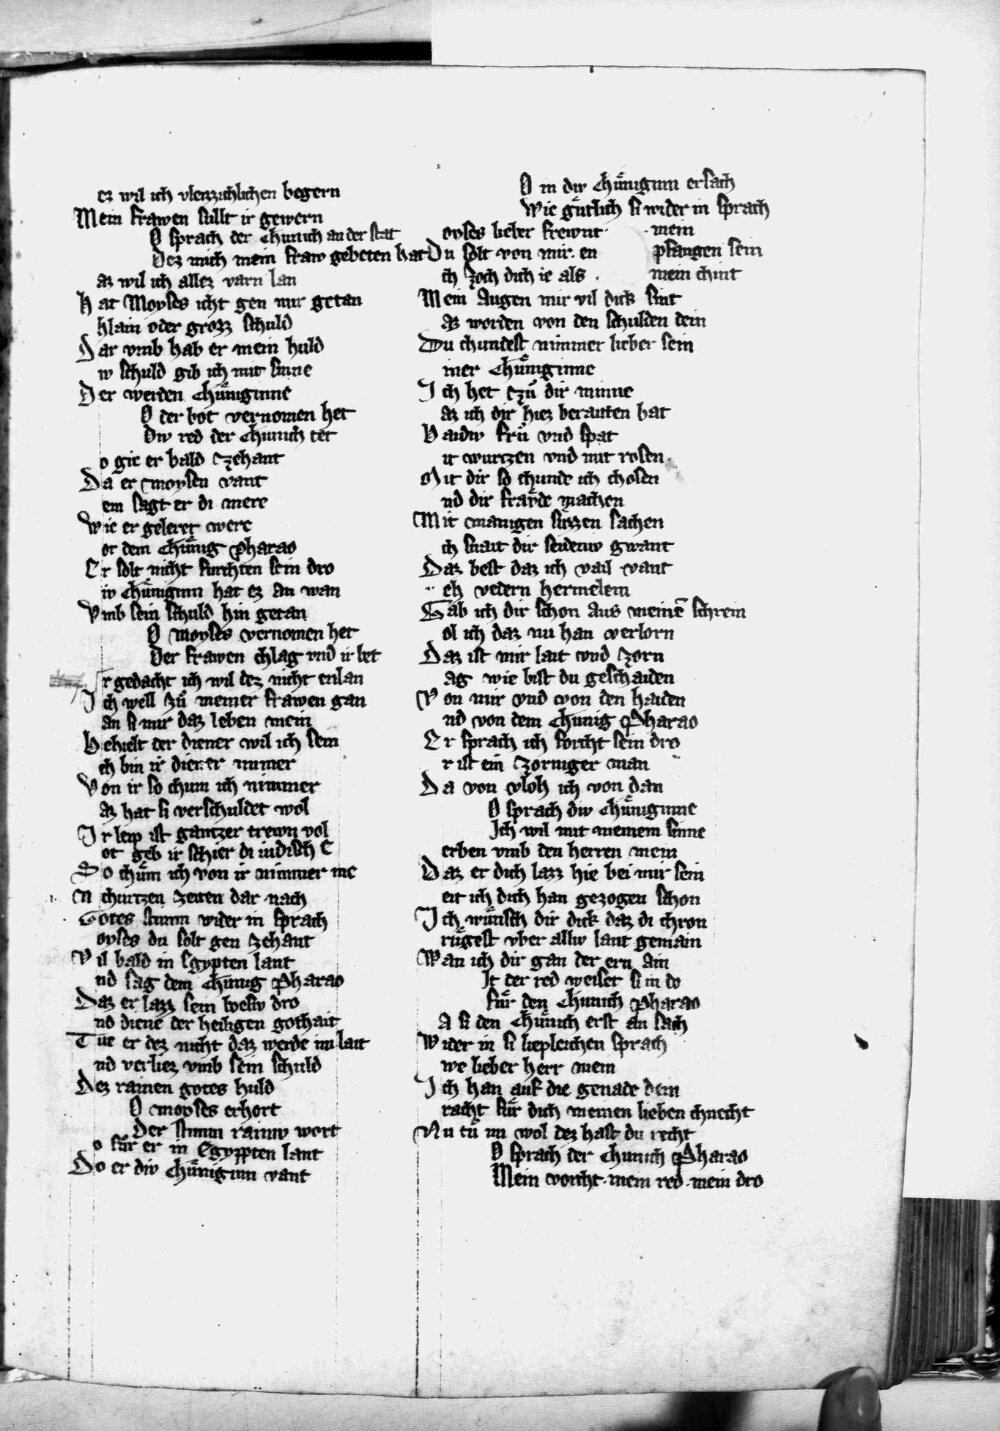 ez wil ich vleizzichlichen begern
Mein frawen sullt ir gewern
O sprach der chunich an der stat
Dez mich mein fraw gebeten hat
az wil ich allez varn lan
Hat Moyses icht gen mir getan
klain oder grozz schuld
Dar vmb hab er mein huld
iv schuld gib ich mit sinne
Der werden chuͤniginne
O der bot vernomen het
Div red der chunich tet
o gie er bald zehant
Da er moysen vant
em sagt er di mere
Wie er geleret were
or dem chuͤnig pharao
Er solt nicht furchten sein dro
iv chuͤniginn hat ez an wan
Vmb sein schuld hin getan
O moyses vernomen het
Der frawen chlag vnd ir bet
r gedacht ich wil dez nicht enlan
Ich well zuͦ meiner frawen gan
an si mir daz leben mein
Behielt der diener wil ich sein
ch bin ir diener immer
Von ir so chum ich nimmer
az hat si verschuldet wol
Ir leip ist gantzer trewn vol
ot geb ir schier di indisch e
So chuͤm ich von ir nimmer me
n churtzen zeiten dar nach
Gotes stimm wider in sprach
oyses du solt gen zehant
Vil bald in egypten lant
nd sag dem chuͤnig Pharao
Daz er lazz sein boesiv dro
nd diene der heiligen gothait
Tue er dez nicht daz werde im lait
nd verliez vmb sein schuld
Dez rainen gotes huld
O moyses erhort
Der stimm rainiv wort
o fuͦr er in Egyppten lant
Do er div chuͤniginn vant
O in div chuͤniginn ersach
Wie guͤtlich si wider in sprach
oyses lieber frewnt mein
Du solt von mir en pfangen sein
ch zoch dich ie als mein chint
Mein Augen mir vil dick sint
az worden von den schulden dein
Du chundest nimmer lieber sein
iner chuͤniginne
Ich het zuͦ dir minne
az ich dir hiez beraiten bat
Baidiv fruͤ vnd spat
it wurtzen vnd mit rosen
Mit dir so chunde ich chosen
nd dir frawde machen
Mit manigen suͤzzen sachen
ch snait dir seideniv gwant
Daz best daz ich vail vant
eh vedern hermelein
Gab ich dir schon aus meinē schrein
ol ich daz nu han verlorn
Daz ist mir lait vnd zorn
ag wie bist du geschaiden
Von mir vnd von den haiden
nd von dem chuͤnig Pharao
Er sprach ich forcht sein dro
r ist ein zorniger man
Da von vloh ich von dan
O sprach div chuͤniginne
Ich wil mit meinem sinne
erben vmb den herren mein
Daz er dich lazz hie bei mir sein
eit ich dich han gezogen schon
Ich wuͤnsch dir dick daz di chron
ruͤgest vber alliv lant gemain
Wan ich dir gan der ern ain
It der red weiset si in do
fuͤr den chunich Pharao
A si den chuͤnich erst an sach
Wider in si liepleichen sprach
we lieber herr mein
Ich han auf die genade dein
racht fuͤr dich meinen lieben chnecht
Nu tuͦ im wol dez hast du recht
O sprach der chunich Pharao
Mein vorcht mein red mein dro